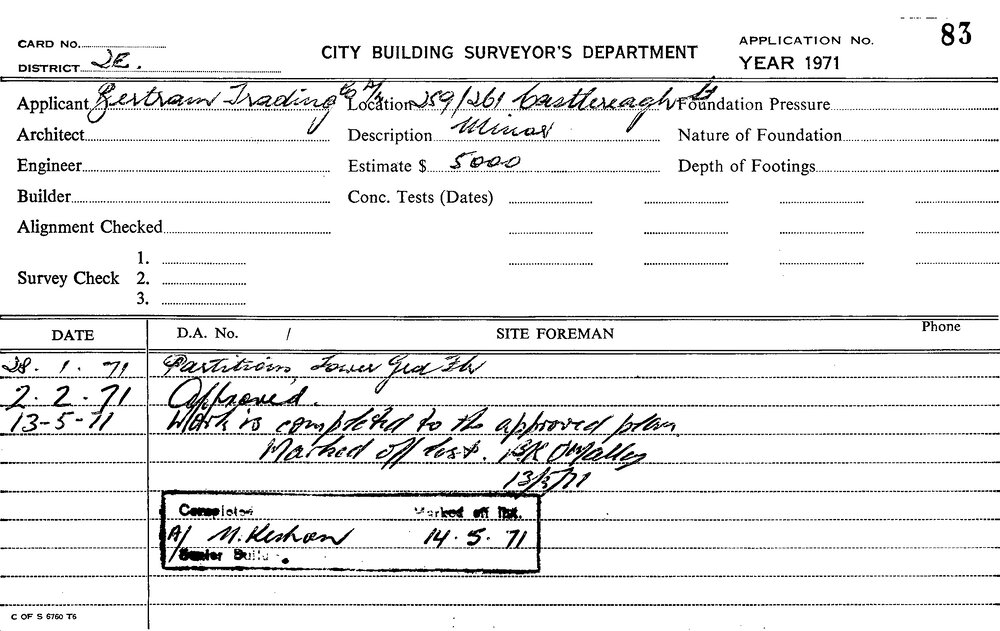 83
CARD No.
CITY BUILDING SURVEYOR'S DEPARTMENT
APPLICATION No.
DISTRICT 2E.
YEAR 1971
Applicant Bertram Trading Co P/L Location 259/261 Castlereagh St Foundation Pressure
Architect Description Minor Nature of Foundation
Engineer Estimate $ 5000 Depth of Footings
Builder Conc. Tests (Dates)
Alignment Checked
1.
Survey Check 2.
3.
DATE D.A. No. / SITE FOREMAN Phone
28. 1. 71 Partitions, Lower Grd Flr
2. 2. 71 Approved.
13-5-71 Work is completed to the approved plan.
Marked off list. BR O'Malley
13/5/71
Completed Marked off list.
A/ 14. 5. 71
Senior Build
C OF S 6760 T6